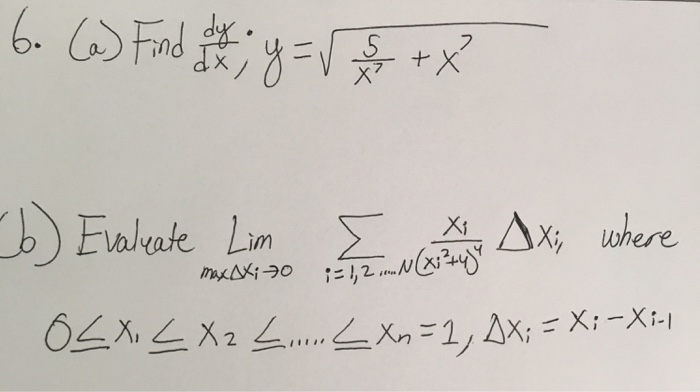 6. (a) Find dy/dx; y = √(5/x⁷ + x⁷)
(b) Evaluate Lim max Δxi→0 Σ i=1,2.....N xi/(xi²+4)⁴ Δxi, where
0 ≤ x₁ ≤ x₂ ≤ ..... ≤ xn = 1, Δxi = xi − xi-1